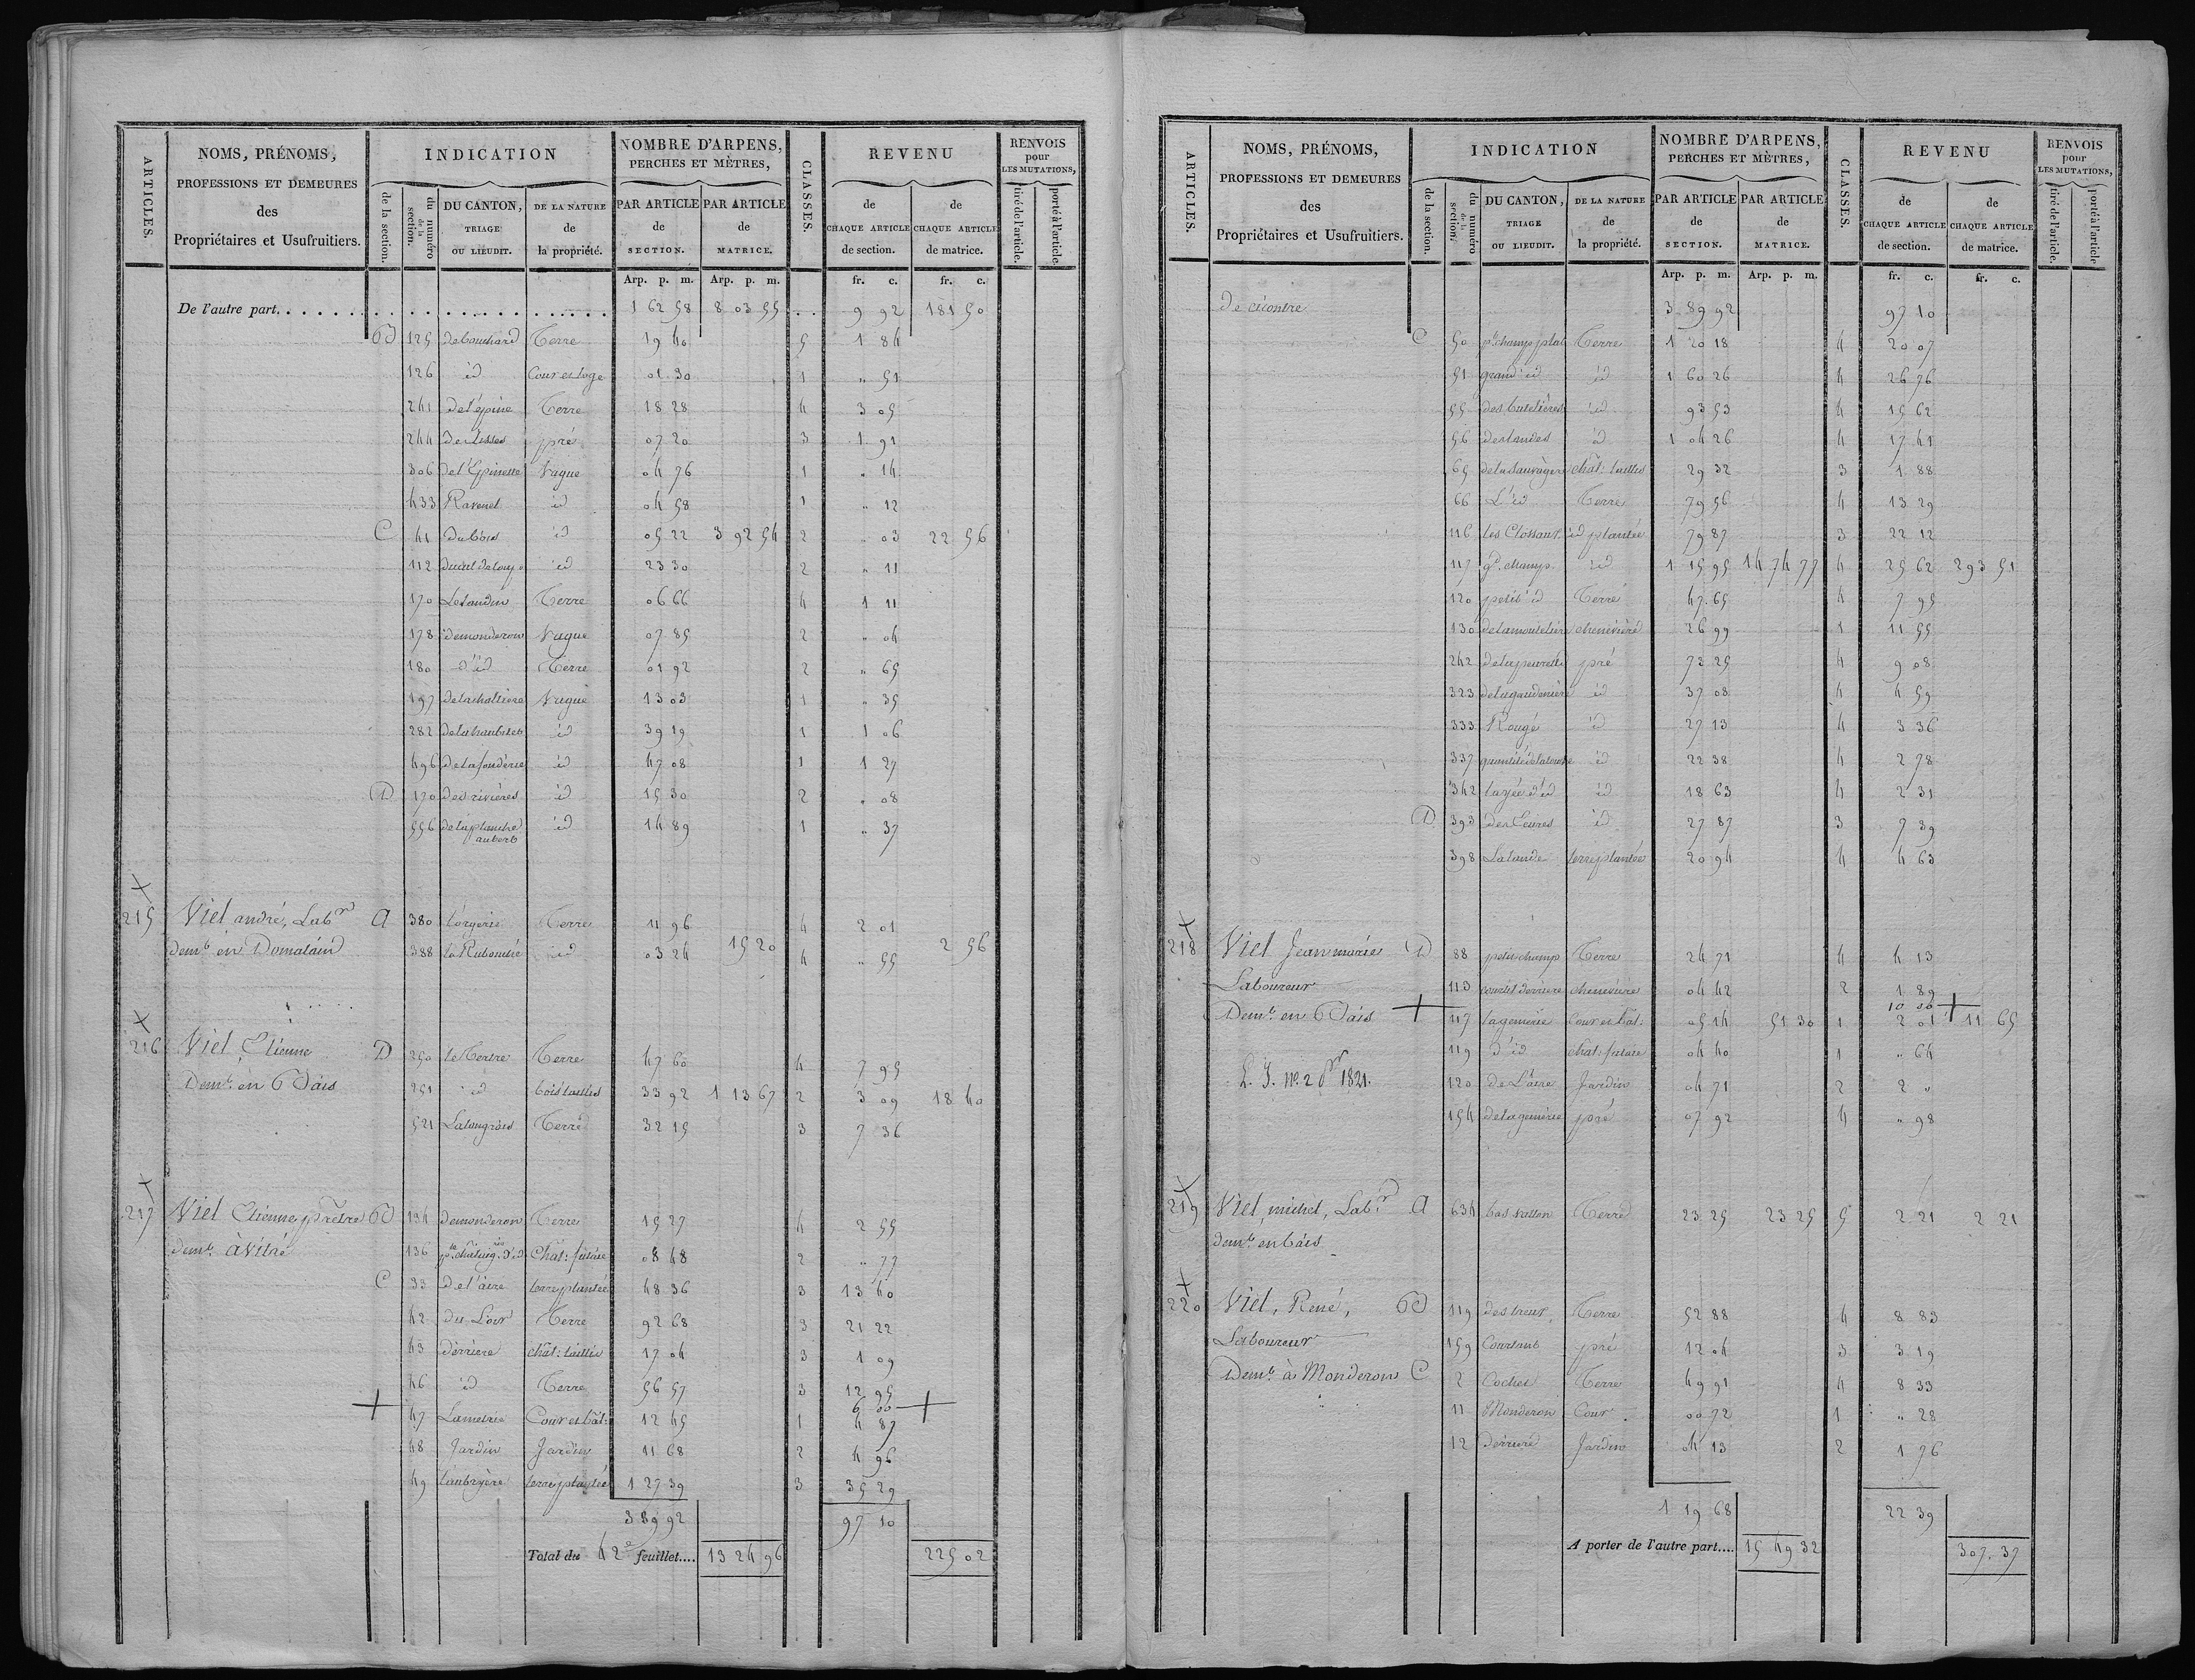 ARTICLES.
NOMS, PRÉNOMS,
PROFESSIONS ET DEMEURES
des
Propriétaires et Usufruitiers.
INDICATION
de la section.
du numéro de la section.
DU CANTON,
TRIAGE
OU LIEUDIT.
DE LA NATURE
de
la propriété.
NOMBRE D'ARPENS,
PERCHES ET MÈTRES,
PAR ARTICLE
de
SECTION.
PAR ARTICLE
de
MATRICE.
CLASSES.
REVENU
de
CHAQUE ARTICLE
de section.
de
CHAQUE ARTICLE
de matrice.
RENVOIS
pour
LES MUTATIONS,
tiré de l'article.
porté à l'article
Arp. p. m. Arp. p. m. fr. c. fr. c.
De l'autre part. 1 62 58 8 03 55 9 92 181 50
B 125 de bouchard Terre 19 40 5 1 84
126 id Cour et loge 01 30 1 " 51
241 de l'épine Terre 18 28 4 3 05
244 des lisses pré 07 20 3 1 91
306 de l'Epinette Vague 04 76 1 " 14
433 Ravenel id 04 58 1 " 12
C 41 du bois id 05 22 3 92 54 2 " 03 22 56
112 du cul de loup id 23 30 2 " 11
170 Le landin Terre 06 66 4 1 11
178 demonderon Vague 07 85 2 " 04
180 d'id Terre 01 92 2 " 65
197 de la Vague 13 03 1 " 35
282 de la id 39 19 1 1 06
496 de la id 47 08 1 1 27
D 170 des rivières id 15 30 2 " 08
556 de la planche aubert id 14 89 1 " 37
215 Viel andré, Labr A 380 l'orgerie Terre 11 96 4 2 01
demt en Domalain 388 la id 03 24 15 20 4 " 55 2 56
216 Viel Etienne D 250 le Tertre Terre 47 60 4 7 95
Demt en Bais 251 id bois taillis 33 92 1 13 67 2 3 09 18 40
521 Terre 32 15 3 7 36
217 Viel Etienne, prêtre B 134 demonderon Terre 15 27 4 2 55
demt à Vitré 136 Chât: futaie 08 48 2 " 77
C 33 de l'aire terre plantée 48 36 3 13 40
42 du Four Terre 92 68 3 21 22
43 derrière chât: taillis 17 04 3 1 09
46 id Terre 56 57 3 12 95
6 00
47 Lametrie Cour et bât: 12 45 1 4 87
48 Jardin Jardin 11 68 2 4 96
49 terre plantée 1 27 39 3 35 29
3 89 92 97 10
Total du 42e feuillet.... 13 24 96 225 02
ARTICLES.
NOMS, PRÉNOMS,
PROFESSIONS ET DEMEURES
des
Propriétaires et Usufruitiers.
INDICATION
de la section.
du numéro de la section.
DU CANTON,
TRIAGE
OU LIEUDIT.
DE LA NATURE
de
la propriété.
NOMBRE D'ARPENS,
PERCHES ET MÈTRES,
PAR ARTICLE
de
SECTION.
PAR ARTICLE
de
MATRICE.
CLASSES.
REVENU
de
CHAQUE ARTICLE
de section.
de
CHAQUE ARTICLE
de matrice.
RENVOIS
pour
LES MUTATIONS,
tiré de l'article.
porté à l'article
Arp. p. m. Arp. p. m. fr. c. fr. c.
De cicontre 3 89 92 97 10
C 50 pt champ plat Terre 1 20 18 4 20 07
51 grand id id 1 60 26 4 26 76
55 des butelières id 93 53 4 15 62
56 des landes id 1 04 26 4 17 41
65 de la sauvagere chât: taillis 29 32 3 1 88
66 L'id Terre 79 56 4 13 29
116 les Clossaux id plantée 79 87 3 22 12
117 gd champ id 1 15 95 14 74 77 4 25 62 293 51
120 petit id Terre 47 65 4 7 95
130 chenevière 26 99 1 11 55
242 pré 72 25 4 9 08
323 de la gaudenière id 37 08 4 4 59
333 Rougé id 27 13 4 3 36
337 id 22 38 4 2 78
342 d'id id 18 63 4 2 31
D 393 id 27 87 3 7 39
398 La lande terre plantée 20 94 4 4 63
218 Viel Jean marie D 88 petit champ Terre 24 71 4 4 13
Laboureur 113 courtil derriere chenevière 04 42 2 1 89
10 00
Demt en Bais 117 la gemerie Cour et bât: 05 14 51 30 1 2 01 11 65
119 d'id chat: futaie 04 40 1 " 64
L. J. No. 2 1821. 120 de L'aire Jardin 04 71 2 2 "
154 de la gemerie pré 07 92 4 " 98
219 Viel, michel, Labr A 634 bas vallon Terre 23 25 23 25 5 2 21 2 21
demt en bais
220 Viel, René, B 119 des Terre 52 88 4 8 83
Laboureur 159 Courtant pré 12 04 3 3 19
Demt à Monderon C 2 Cochet Terre 49 91 4 8 33
11 Monderon Cour 00 72 1 " 28
12 derriere Jardin 04 13 2 1 76
1 19 68 22 39
A porter de l'autre part.... 15 49 32 307. 37